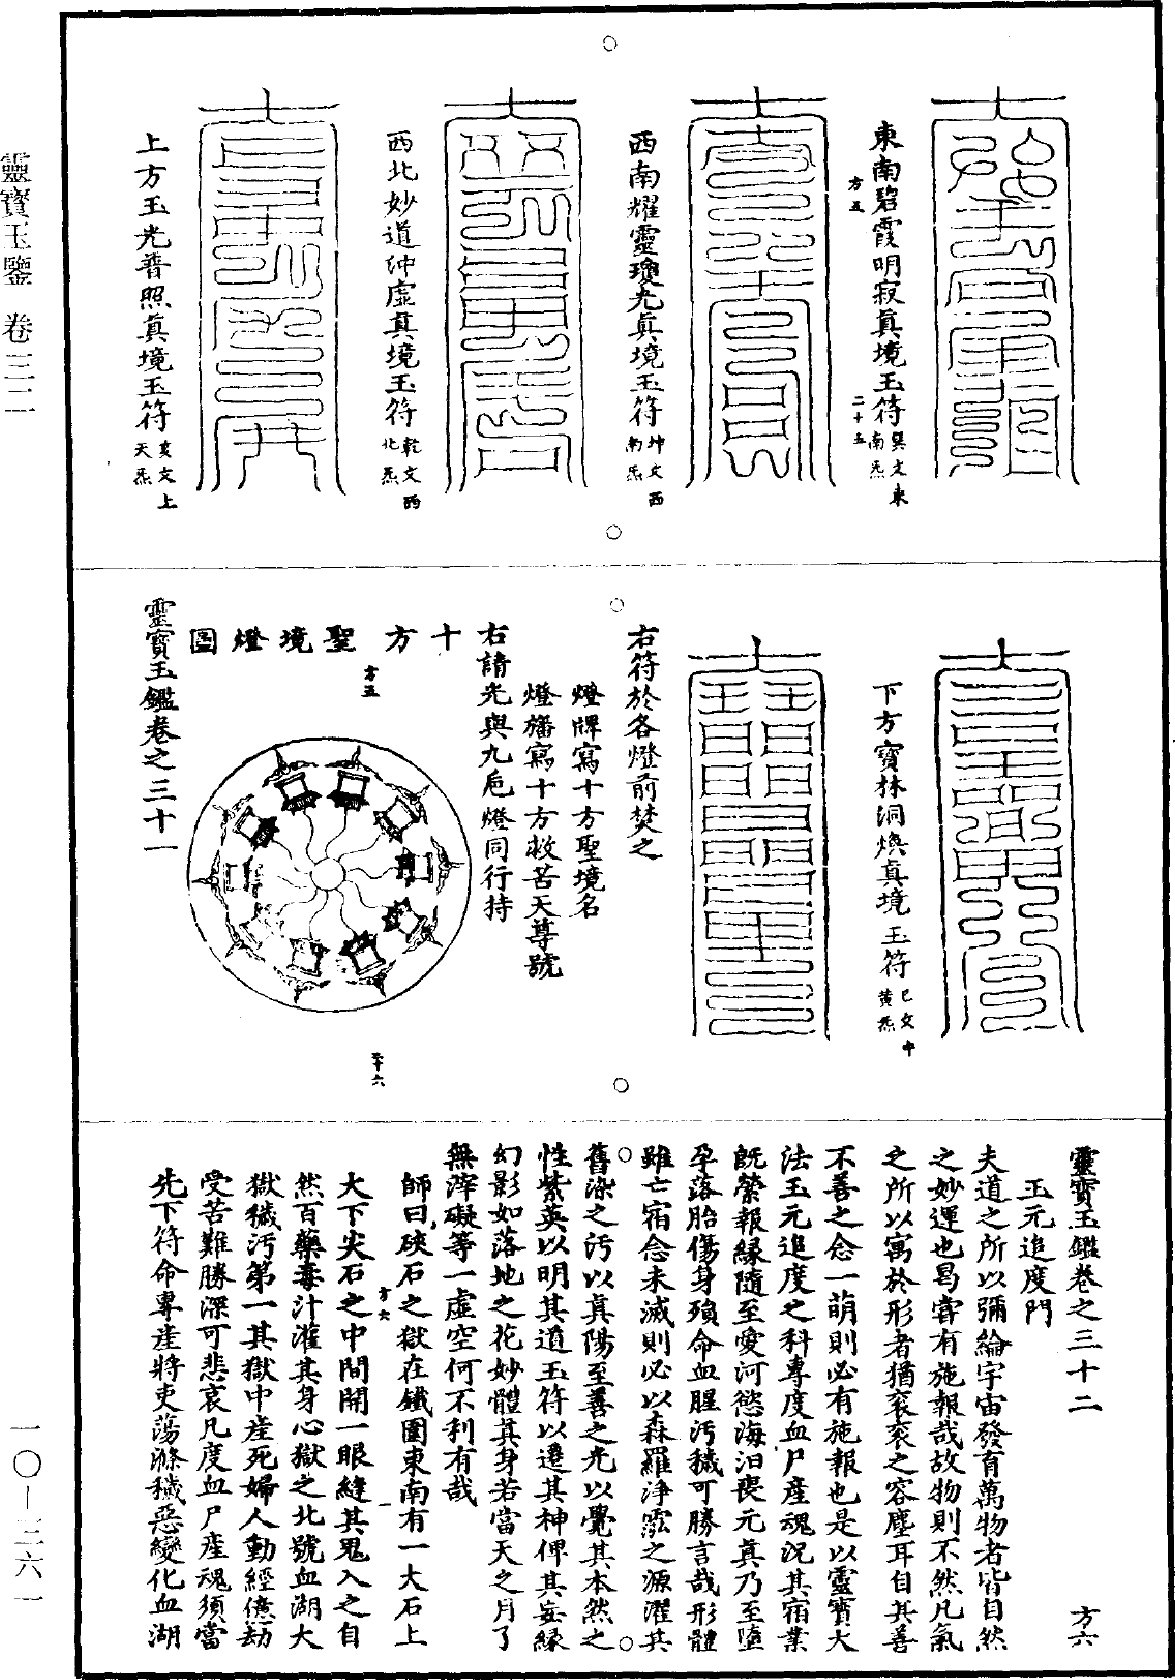 靈寶玉鑒 卷三二
東南碧霞明寂真境玉符巽文東南炁
方五
二十五
西南耀靈瓊光真境玉符坤文西南炁
西北妙道沖虛真境玉符乾文西北炁
上方玉光普照真境玉符亥文上天炁
下方寶林洞煥真境玉符巳文中黃炁
右符於各燈前焚之
燈牌寫十方聖境名
燈旛寫十方救苦天尊號
右請光與九巵燈同行持
十方聖境燈圖
方五
二十六
靈寶玉鑑卷之三十一
靈寶玉鑑卷之三十二
方六
玉元追度門
夫道之所以彌綸宇宙發育萬物者皆自然
之妙運也曷嘗有施報哉故物則不然凡氣
之所以寓於形者猶衮衮之容塵耳自其善
不善之念一萌則必有施報也是以靈寶大
法玉元追度之科專度血尸產魂況其宿業
既縈報緣隨至愛河慾海汨喪元真乃至墮
孕落胎傷身殞命血腥污穢可勝言哉形體
雖亡宿念未滅則必以森羅淨泓之源濯其
舊染之污以真陽至善之光以覺其本然之
性紫英以明其道玉符以遷其神俾其妄緣
幻影如落地之花妙體真身若當天之月了
無滓礙等一虛空何不利有哉
師曰硤石之獄在鐵圍東南有一大石上
大下尖石之中間開一眼縫其鬼入之自
方六
一
然百藥毒汁灌其身心獄之北號血湖大
獄穢污第一其獄中產死婦人動經億劫
受苦難勝深可悲哀凡度血尸產魂須當
先下符命專差將吏蕩滌穢惡變化血湖
一〇—三六一